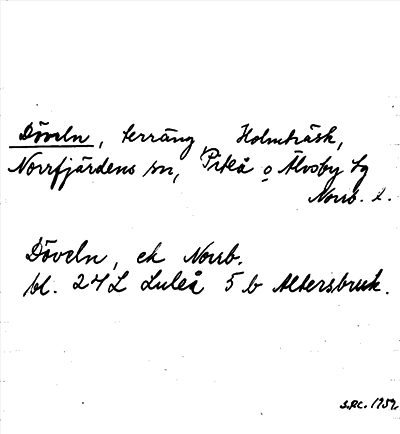 Döveln, terräng, Holmträsk,
Norrfjärdens sn, Piteå o Älvsby tg
Norrb. l.
Döveln, ek Norrb.
bl. 24L Luleå 5 b Altersbruk.
1959